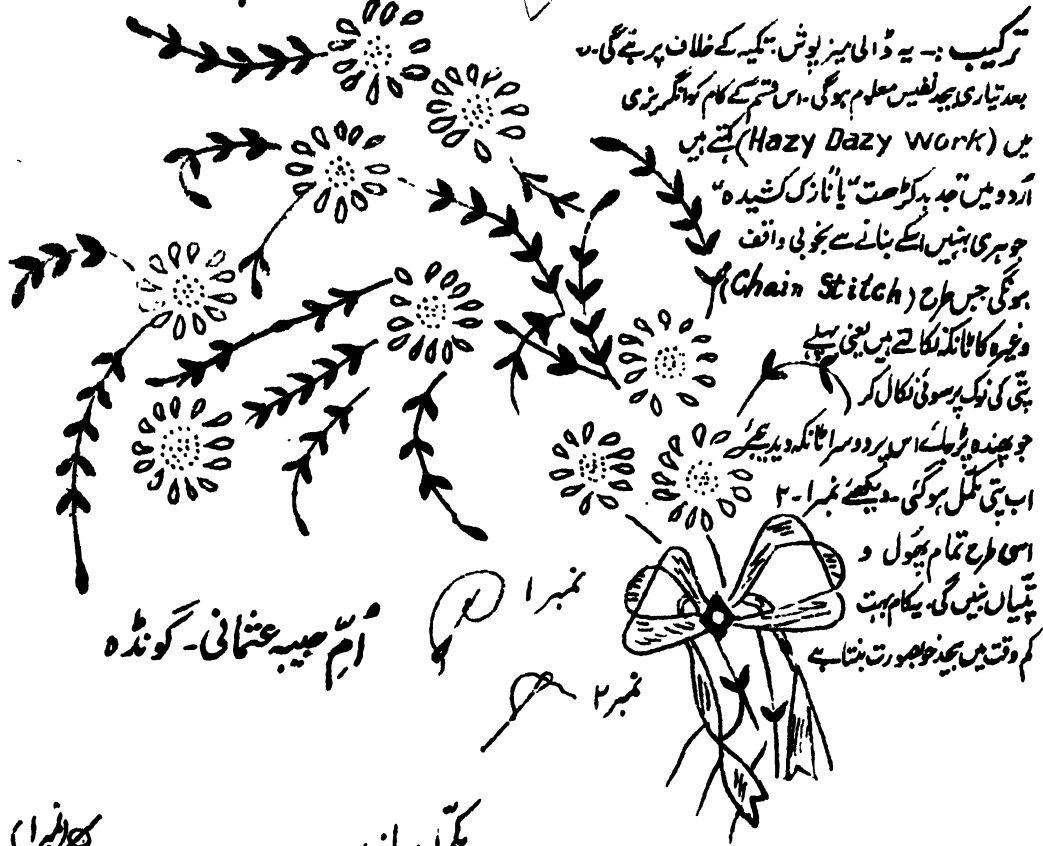 ترکیب :۔ یہ ڈالی میز پوش، تکیہ کے غلاف پر بنے گی۔
بعد تیاری بیحد نفیس معلوم ہوگی۔ اس قسم کے کام کو انگریزی
میں (Hazy Dazy Work) کہتے ہیں
اُردو میں "جدید کڑھت" یا "نازک کشیدہ"
جو ہری بہنیں اسکے بنانے سے بخوبی واقف
ہونگی جس طرح (Chain Stitch)
وغیرہ کا ٹانکہ نکالتے ہیں یعنی پہلے
پتّی کی نوک پر سوئی نکال کر
جو پھندہ پڑ جائے اس پر دوسرا ٹانکہ دیدیجئے
اب پتی مکمل ہوگئی۔ دیکھئے نمبر ۱۔۲
اسی طرح تمام پھول و
پتّیاں بنیں گی۔ یہ کام بہت
کم وقت میں بیحد خوبصورت بنتا ہے
نمبر ۱
اُمِّ حبیبہ عثمانی۔ گونڈہ
نمبر ۲
(نمبر ۱)